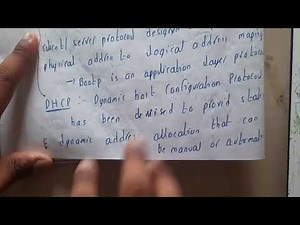 client/server protocol designed
physical addres to logical address maping
→ Bootp is an application layer protoc
DHCP :- Dynamic host Configuration Protocol
has been devised to provid stati
& dynamic address allocation that can
be manual or automati